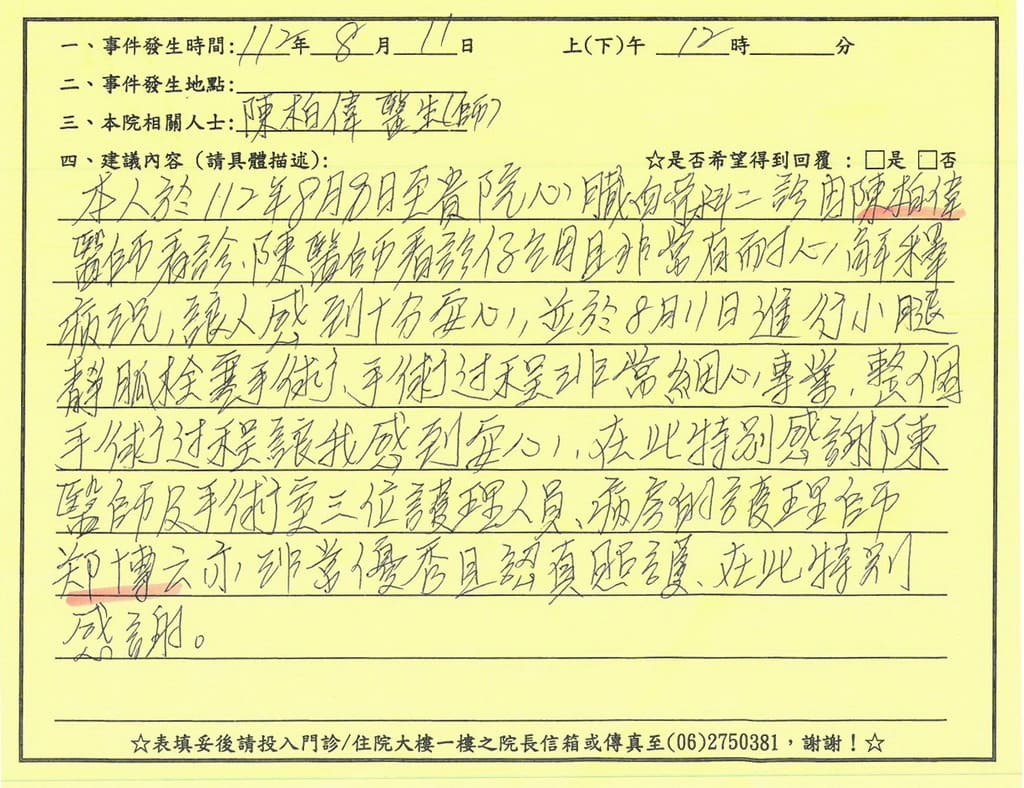 一、事件發生時間：112年8月11日 上(下)午 12時 分
二、事件發生地點：
三、本院相關人士：陳柏偉 醫生(師)
四、建議內容（請具體描述）： ☆是否希望得到回覆：□是 □否
本人於112年8月8日至貴院心臟血管科二診由陳柏偉
醫師看診、陳醫師看診仔細且非常有耐心解釋
病況，讓人感到十分安心，並於8月11日進行小腿
靜脈栓塞手術、手術过程非常細心專業，整個
手術过程讓我感到安心，在此特別感謝陳
醫師及手術室三位護理人員、病房的護理師
郑博云亦非常優秀且認真照護、在此特別
感謝。
☆表填妥後請投入門診/住院大樓一樓之院長信箱或傳真至(06)2750381，謝謝！☆